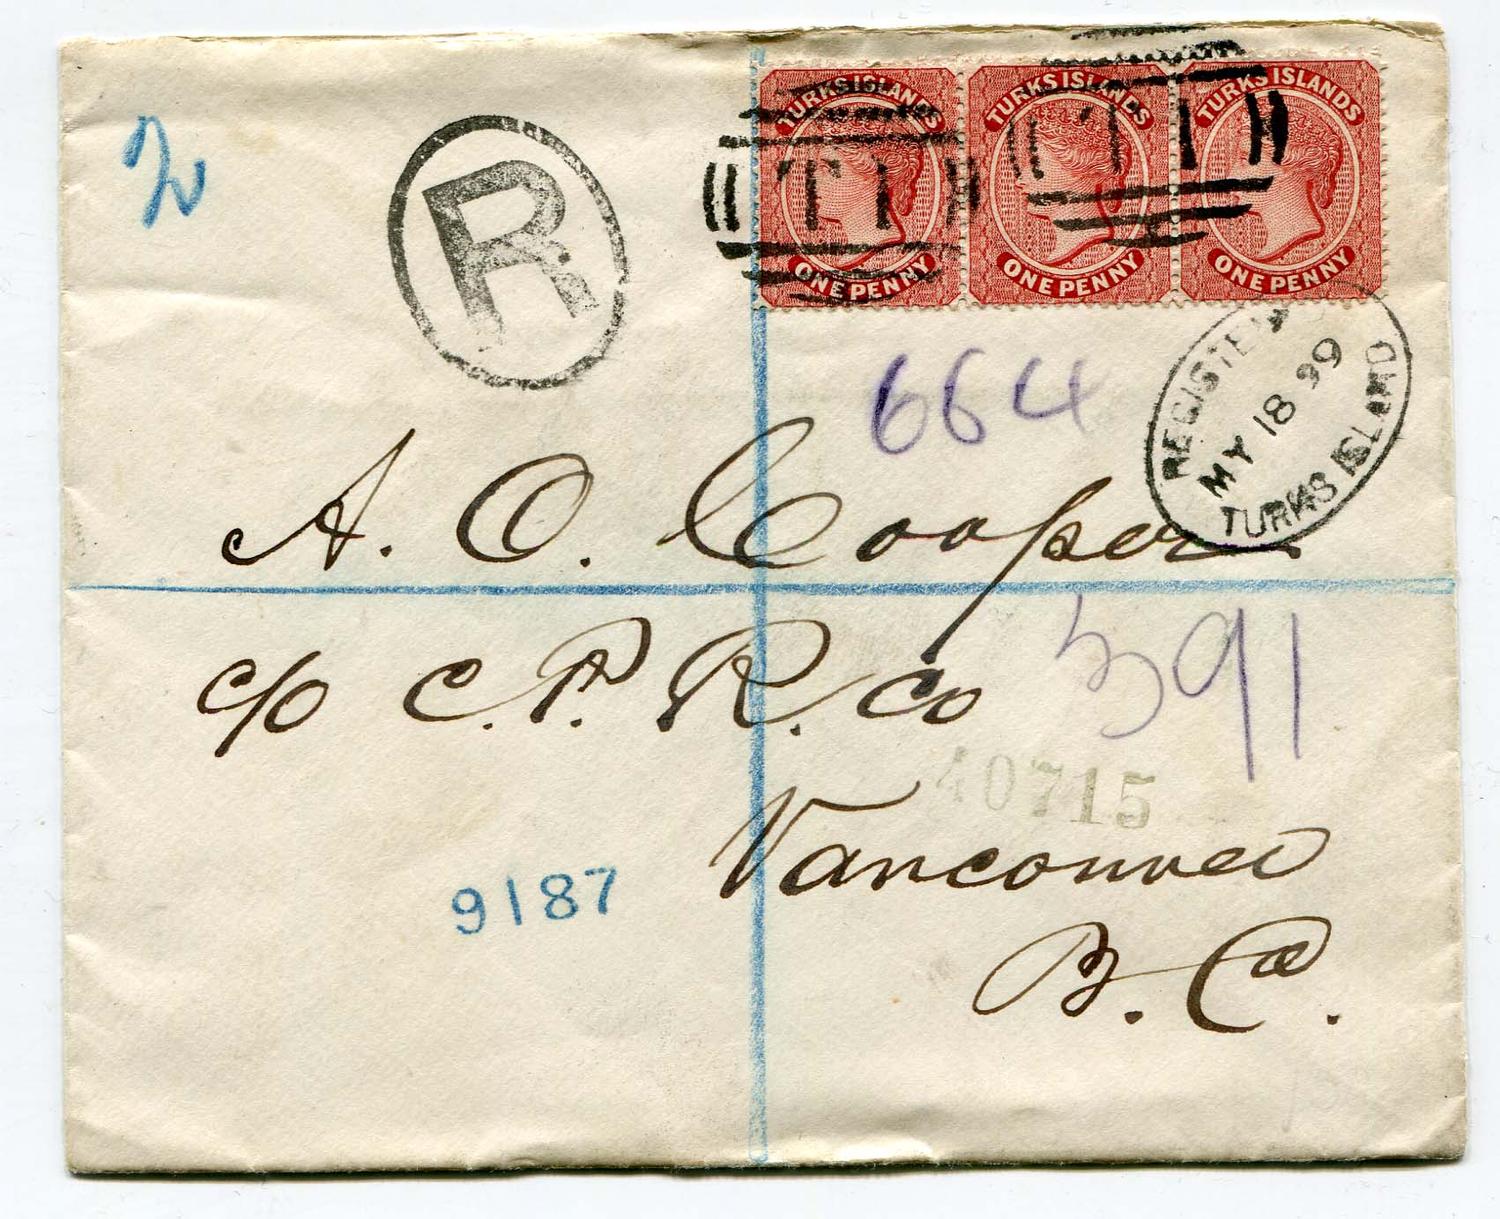 2
R
TURKS ISLANDS
ONE PENNY
TURKS ISLANDS
ONE PENNY
TURKS ISLANDS
ONE PENNY
T I
T I
REGISTERED
MY 18 99
TURKS ISLAND
664
A. O. Cooper
c/o C. P. R. Co
391
40715
Vancouver
9187
B. C.